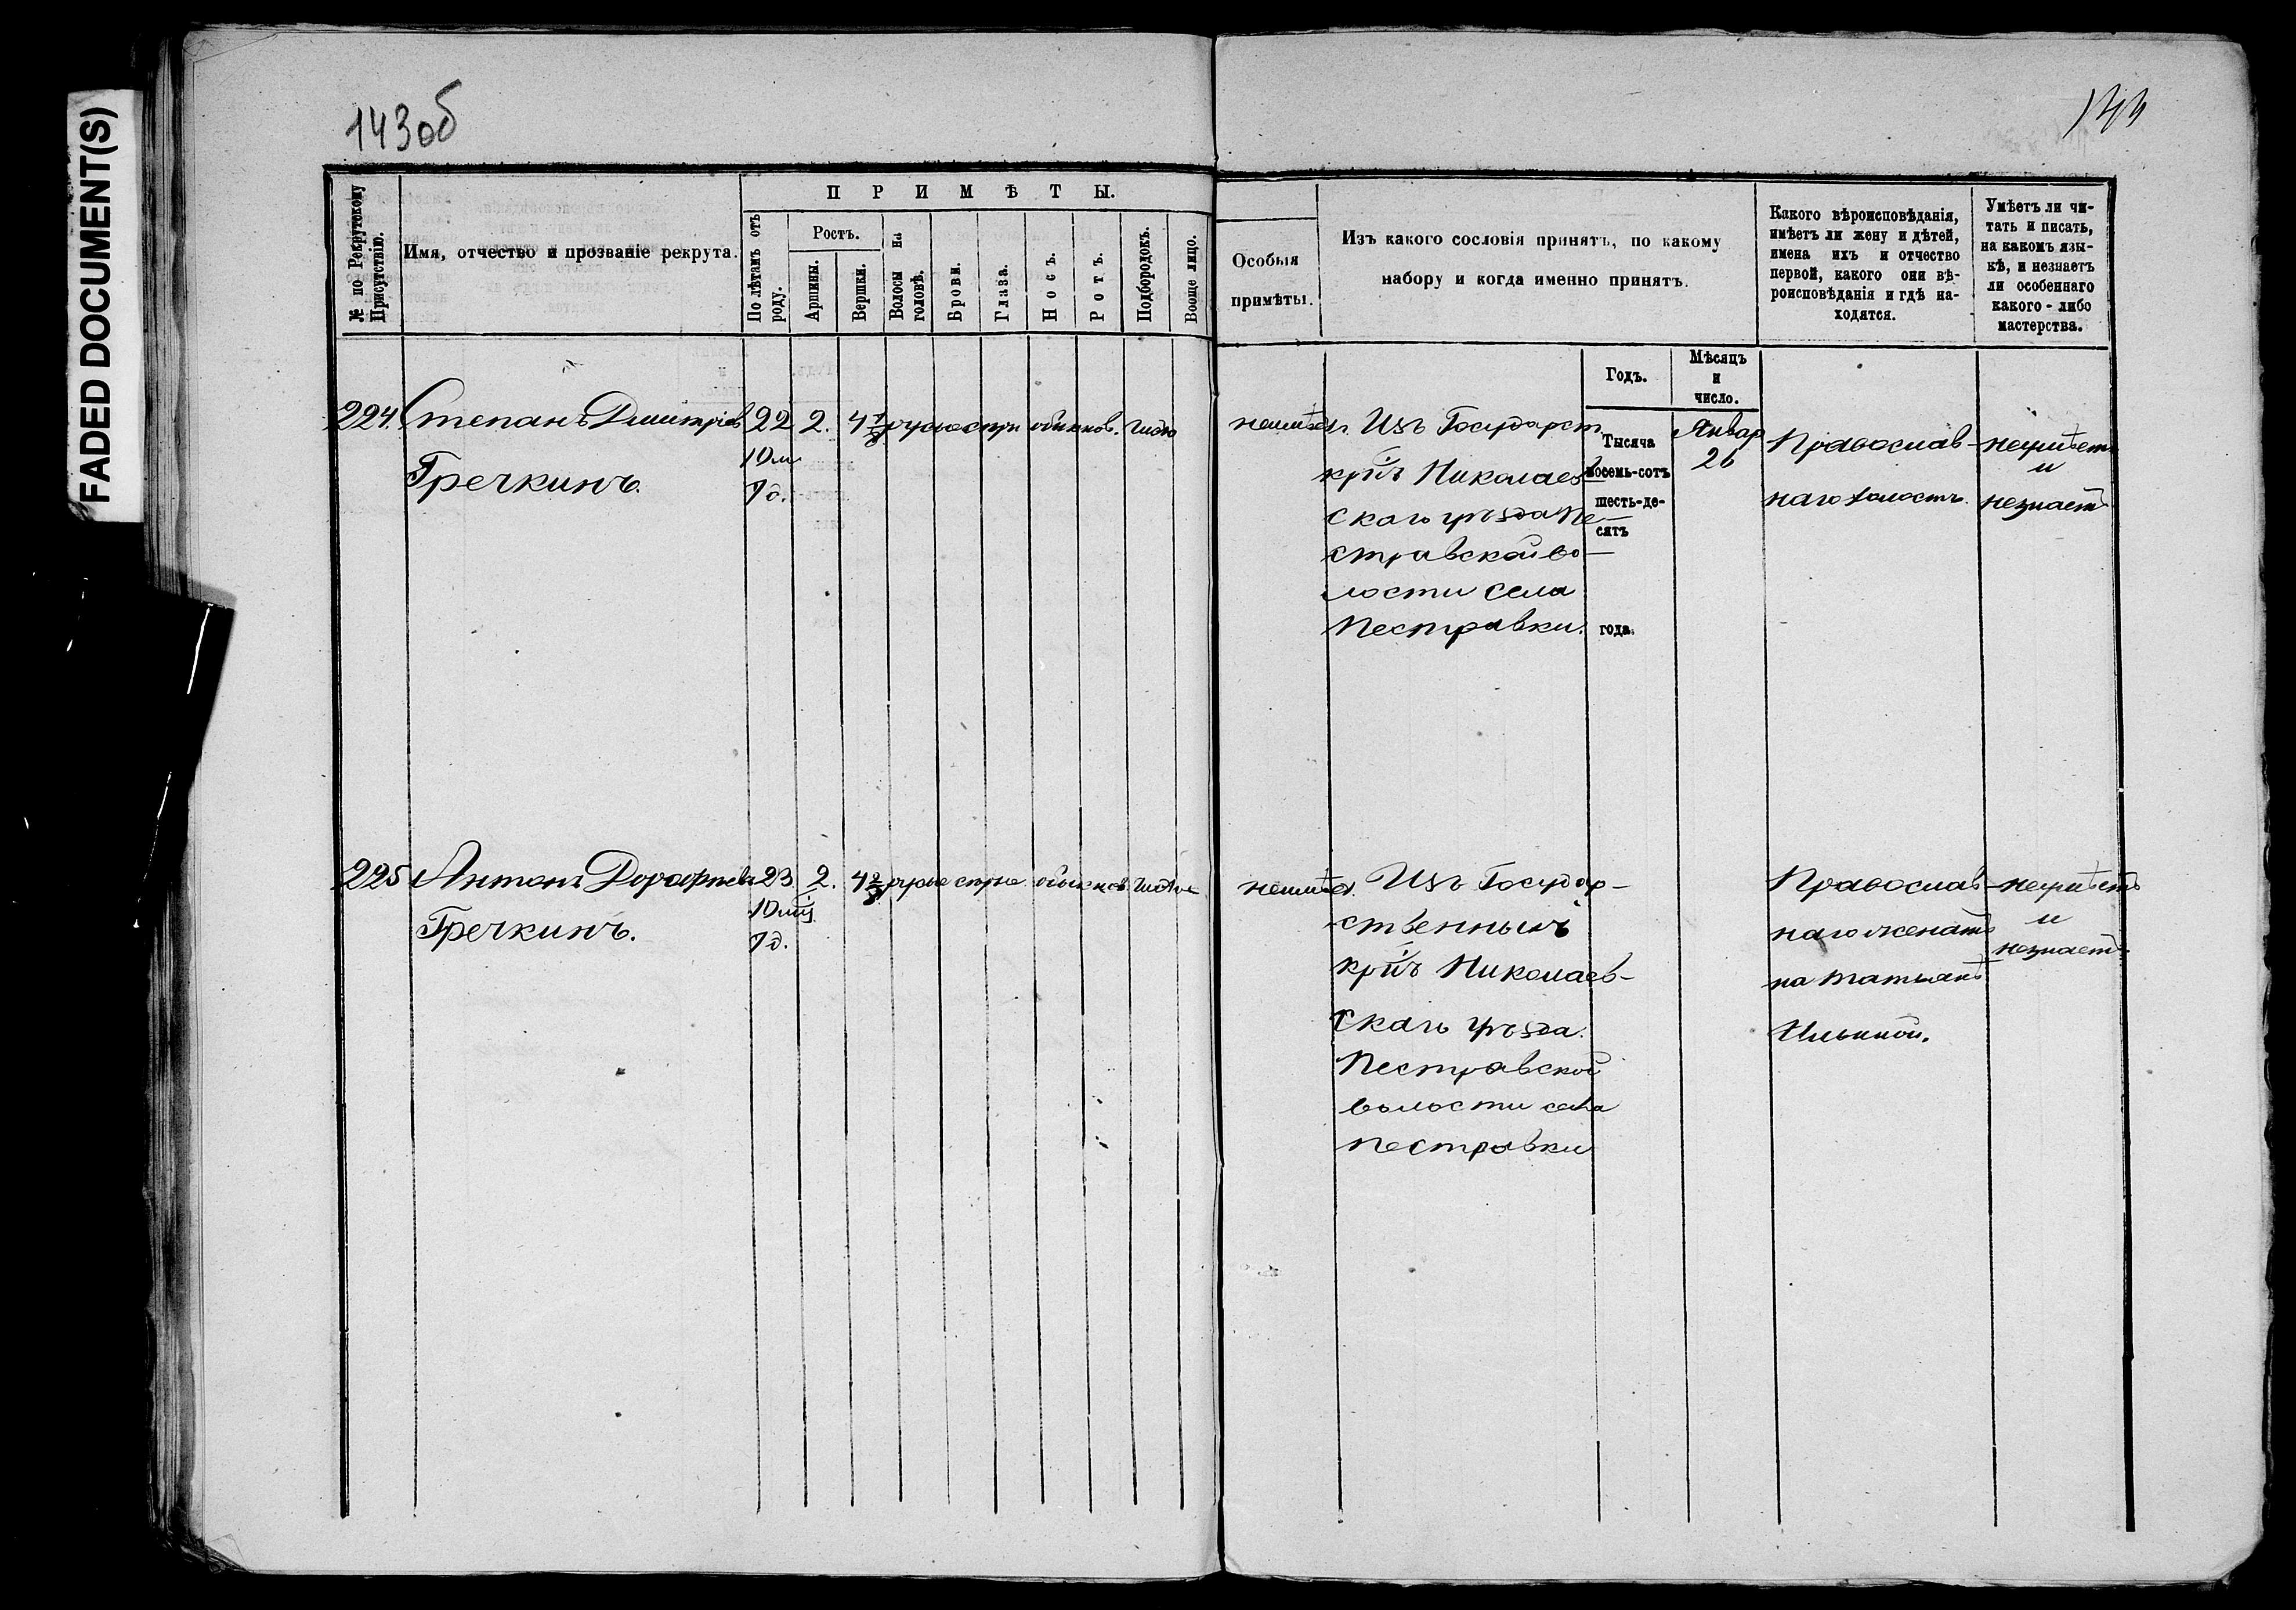 FADED DOCUMENT(S)
143об
144
№ по Рекрутскому Присутствію.
Имя, отчество и прозваніе рекрута.
ПРИМѢТЫ.
По лѣтамъ отъ роду.
Ростъ.
Аршины.
Вершки.
Волосы на головѣ.
Брови.
Глаза.
Носъ.
Ротъ.
Подбородокъ.
Вооще лицо.
Особыя
примѣты.
Изъ какого сословія принятъ, по какому
набору и когда именно принятъ.
Какого вѣроисповѣданія,
имѣетъ ли жену и дѣтей,
имена ихъ и отчество
первой, какого они вѣ-
роисповѣданія и гдѣ на-
ходятся.
Умѣетъ ли чи-
тать и писать,
на какомъ язы-
кѣ, и незнаетъ
ли особеннаго
какого-либо
мастерства.
Годъ.
Мѣсяцъ
и
число.
224. Степанъ Дмитріев 22 2. 4 русые серы обыкнов. чисто
Гречкинъ.
10 м
7 д.
неимѣет. Изъ Государст
кр̃нъ Николаев
скаго уѣзда Пе-
стравской во-
лости села
Пестравки.
Тысяча
восемь-сотъ
шесть-де-
сятъ
года.
Январ
26
Православ-
наго холостъ.
неумѣетъ
и
незнаетъ
225 Антонъ Дорофѣевъ 23 2. 4 русые серые обыкнов. чистое
Гречкинъ.
10 мц
7 д.
неимѣет. Изъ Государ-
ственныхъ
кр̃нъ Николаев-
скаго уѣзда.
Пестравской
волости села
Пестравки
Православ-
наго женатъ
на Татьянѣ
Ильиной.
неумѣетъ
и
незнаетъ